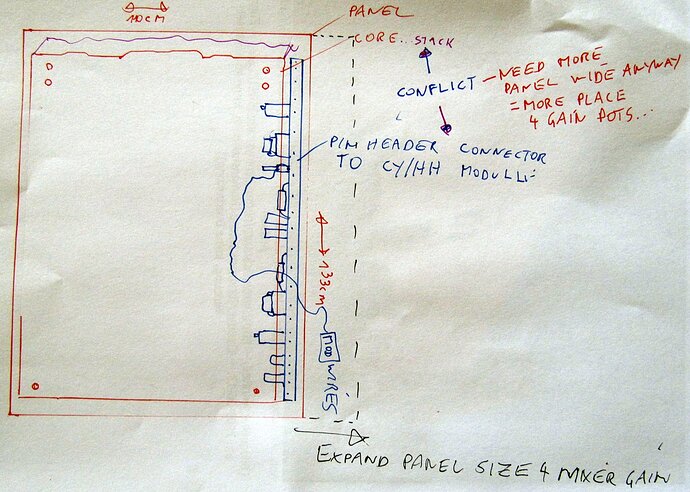 10CM
PANEL
CORE.. STACK
CONFLICT
– NEED MORE
PANEL WIDE ANYWAY
= MORE PLACE
4 GAIN POTS...
PIN HEADER CONNECTOR
TO CY/HH MODULLI
133cm
WIRES
EXPAND PANEL SIZE 4 MIXER GAIN